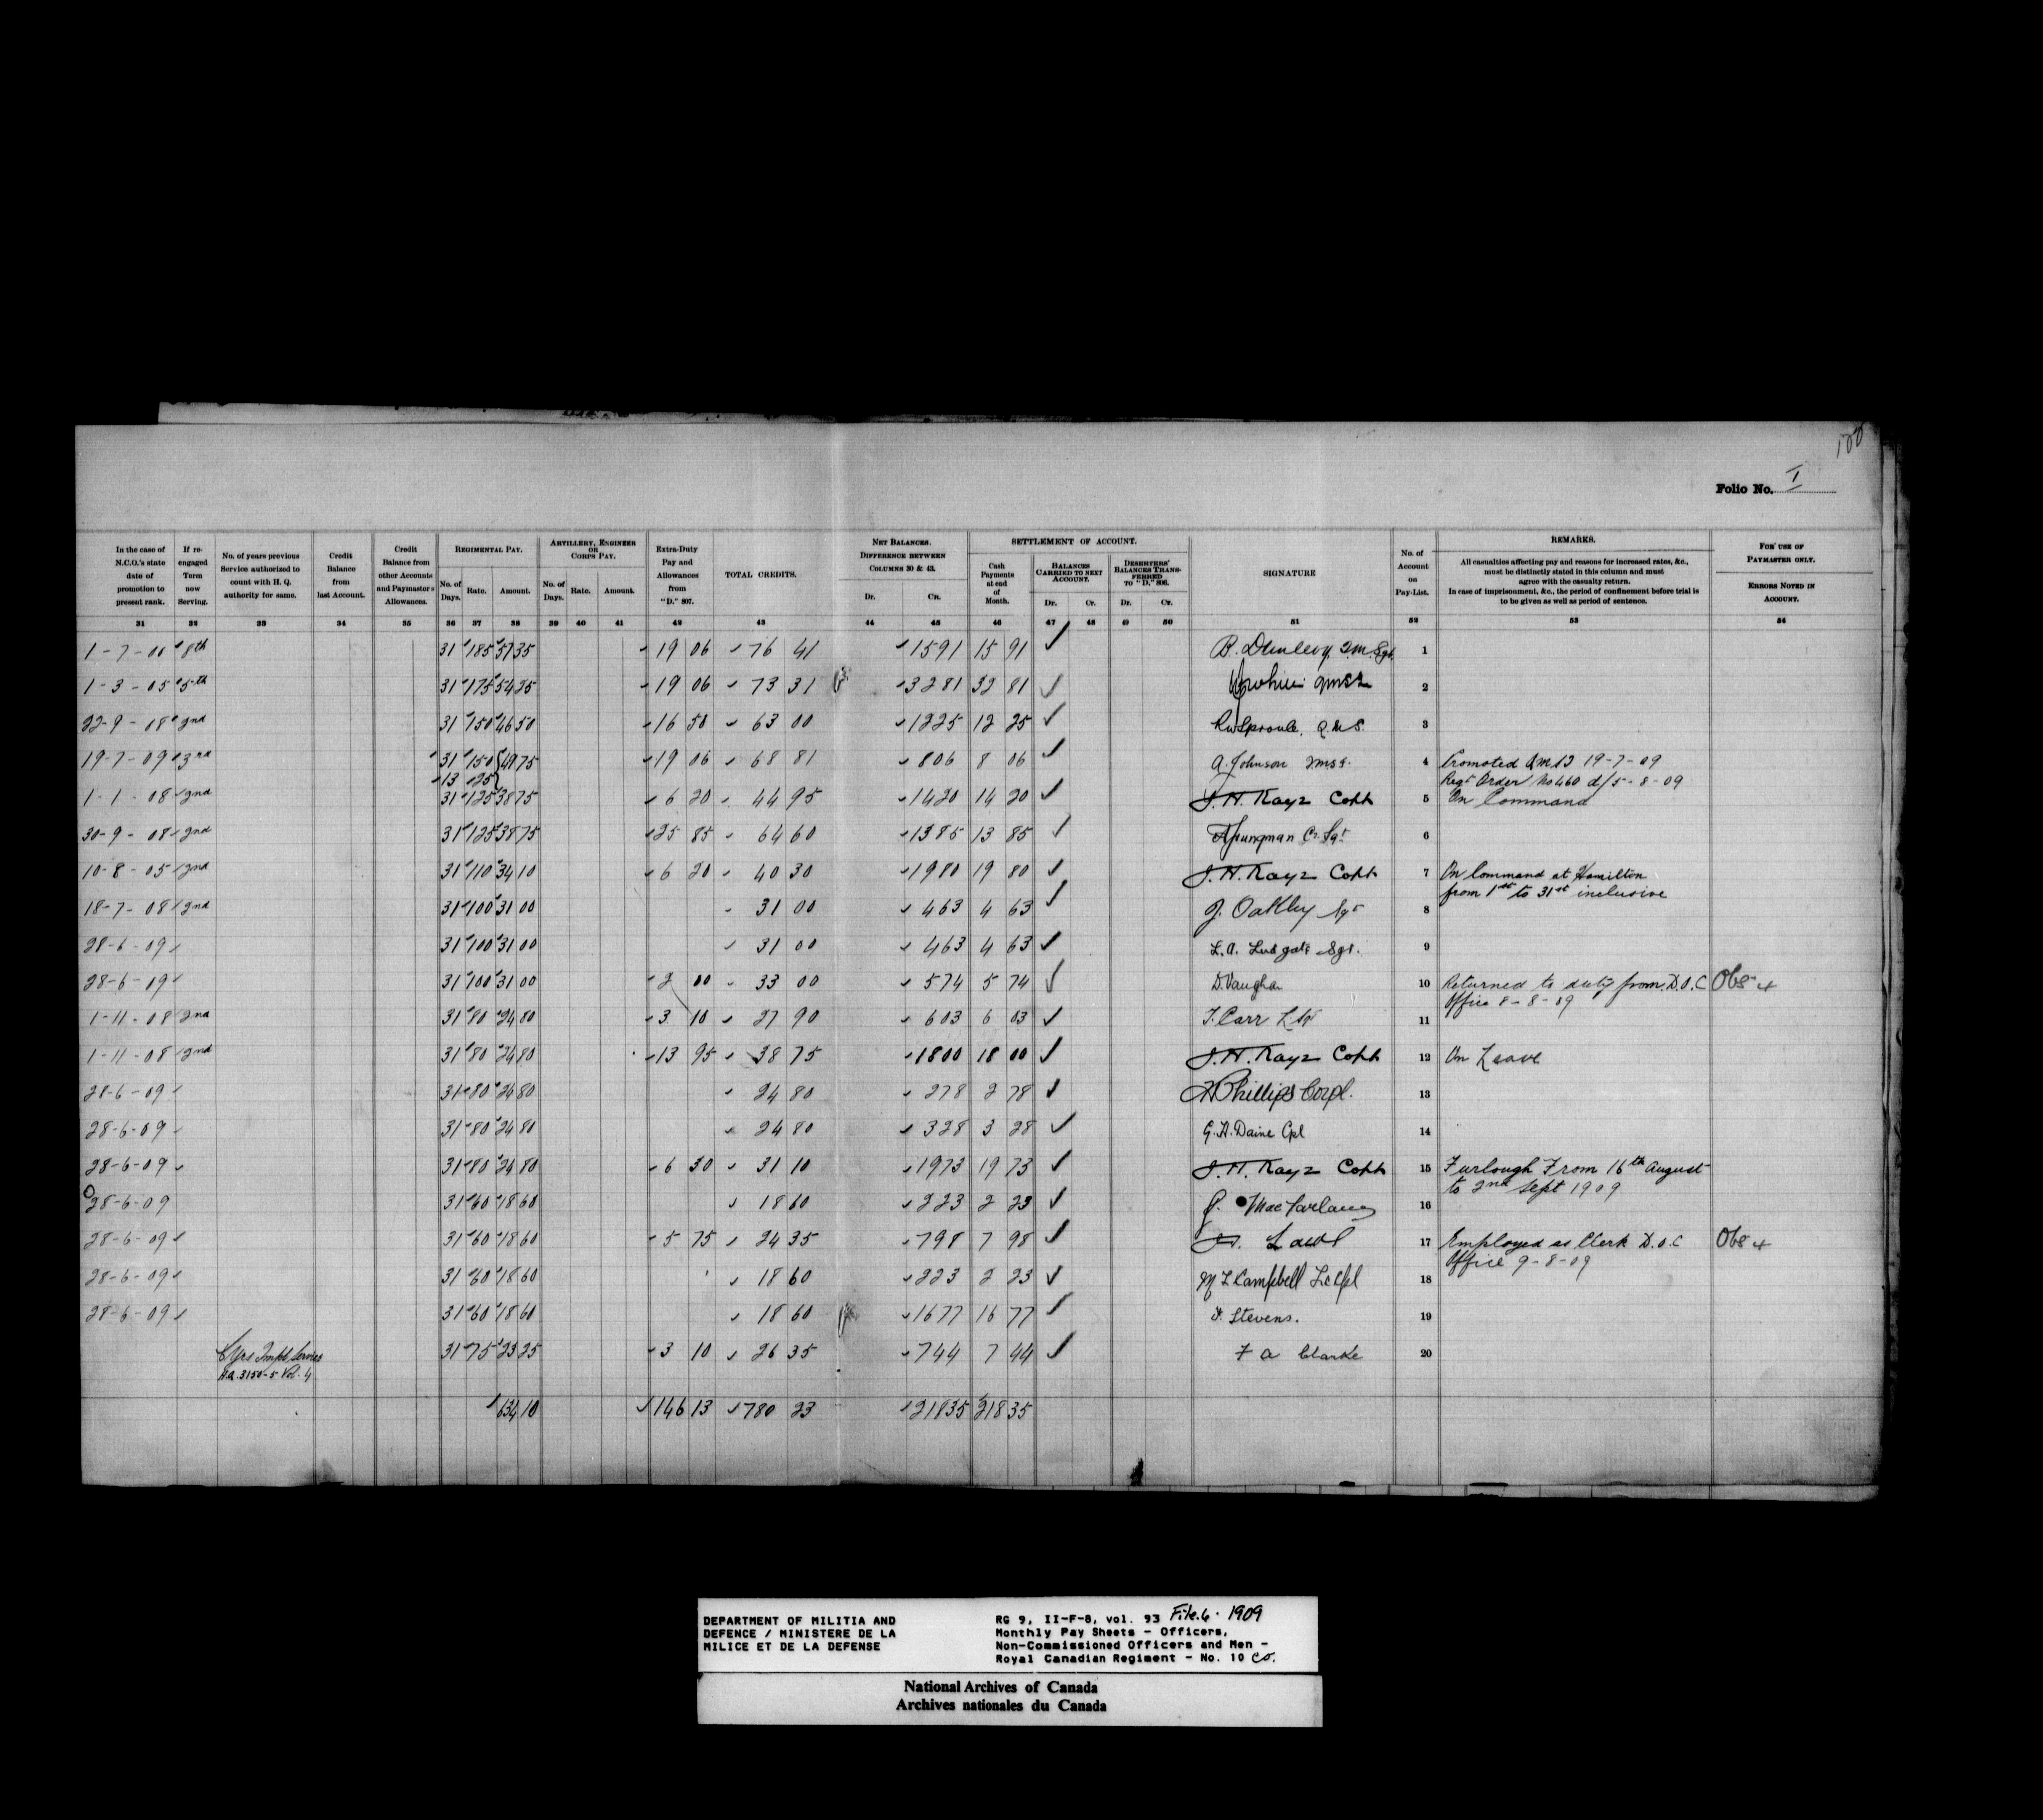 100
Folio No. I
In the case of N.C.O.'s state date of promotion to present rank.
If re-engaged Term now Serving.
No. of years previous Service authorized to count with H. Q. authority for same.
Credit Balance from last Account.
Credit Balance from other Accounts and Paymaster's Allowances.
REGIMENTAL PAY.
No. of Days. Rate. Amount.
ARTILLERY, ENGINEER OR CORPS PAY.
No. of Days. Rate. Amount.
Extra-Duty Pay and Allowances from "D." 807.
TOTAL CREDITS.
NET BALANCES. DIFFERENCE BETWEEN COLUMNS 30 & 43.
Dr. Cr.
SETTLEMENT OF ACCOUNT.
Cash Payments at end of Month.
BALANCES CARRIED TO NEXT ACCOUNT.
Dr. Cr.
DESERTERS' BALANCES TRANSFERRED TO "D." 806.
Dr. Cr.
SIGNATURE
No. of Account on Pay-List.
REMARKS.
All casualties affecting pay and reasons for increased rates, &c., must be distinctly stated in this column and must agree with the casualty return.
In case of imprisonment, &c., the period of confinement before trial is to be given as well as period of sentence.
FOR USE OF PAYMASTER ONLY.
ERRORS NOTED IN ACCOUNT.
31 32 33 34 35 36 37 38 39 40 41 42 43 44 45 46 47 48 49 50 51 52 53 54
1-7-00 8th 31 185 57 35 19 06 76 41 15 91 15 91 B. Dunlevy Q.M. Sgt 1
1-3-05 5th 31 175 54 25 19 06 73 31 32 81 32 81 QMSI 2
22-9-08 2nd 31 150 46 50 16 50 63 00 12 25 12 25 RW Sproule. Q M S. 3
19-7-09 3rd 31 150 49 75 19 06 68 81 8 06 8 06 A. Johnson QMSI. 4 Promoted QMSI 19-7-09
13 25 Regt Order No 460 d/5-8-09
1-1-08 2nd 31 125 38 75 6 20 44 95 14 20 14 20 J. H. Kaye Capt 5 On Command
30-9-08 2nd 31 125 38 75 25 85 64 60 13 85 13 85 Youngman Cr. Sgt 6
10-8-05 2nd 31 110 34 10 6 20 40 30 19 80 19 80 J. H. Kaye Capt 7 On Command at Hamilton
from 1st to 31st inclusive
18-7-08 2nd 31 100 31 00 31 00 4 63 4 63 J. Oakley Sgt 8
28-6-09 31 100 31 00 31 00 4 63 4 63 L.A. Ludgate Sgt. 9
28-6-09 31 100 31 00 2 00 33 00 5 74 5 74 D. Vaughan 10 Returned to duty from D.O.C Obs
Office 8-8-09
1-11-08 2nd 31 80 24 80 3 10 27 90 6 03 6 03 T. Carr L/Sgt 11
1-11-08 2nd 31 80 24 80 13 95 38 75 18 00 18 00 J. H. Kaye Capt 12 On Leave
28-6-09 31 80 24 80 24 80 2 78 2 78 H Phillips Corpl. 13
28-6-09 31 80 24 80 24 80 3 28 3 28 G. H. Daine Cpl 14
28-6-09 31 80 24 80 6 30 31 10 19 73 19 73 J. H. Kaye Capt 15 Furlough From 16th August
to 2nd Sept 1909
28-6-09 31 60 18 60 18 60 2 23 2 23 G. MacFarlane 16
28-6-09 31 60 18 60 5 75 24 35 7 98 7 98 17 Employed as Clerk D.O.C Obs
Office 9-8-09
28-6-09 31 60 18 60 18 60 2 23 2 23 M L Campbell Lc Cpl 18
28-6-09 31 60 18 60 18 60 16 77 16 77 F. Stevens. 19
Yrs Impl Service 31 75 23 25 3 10 26 35 7 44 7 44 F A Clarke 20
H.Q. 3150-5 Vol. 4
634 10 146 13 780 23 218 35 218 35
DEPARTMENT OF MILITIA AND
DEFENCE / MINISTERE DE LA
MILICE ET DE LA DEFENSE
RG 9, II-F-8, vol. 93 File.6. 1909
Monthly Pay Sheets - Officers,
Non-Commissioned Officers and Men -
Royal Canadian Regiment - No. 10 Co.
National Archives of Canada
Archives nationales du Canada